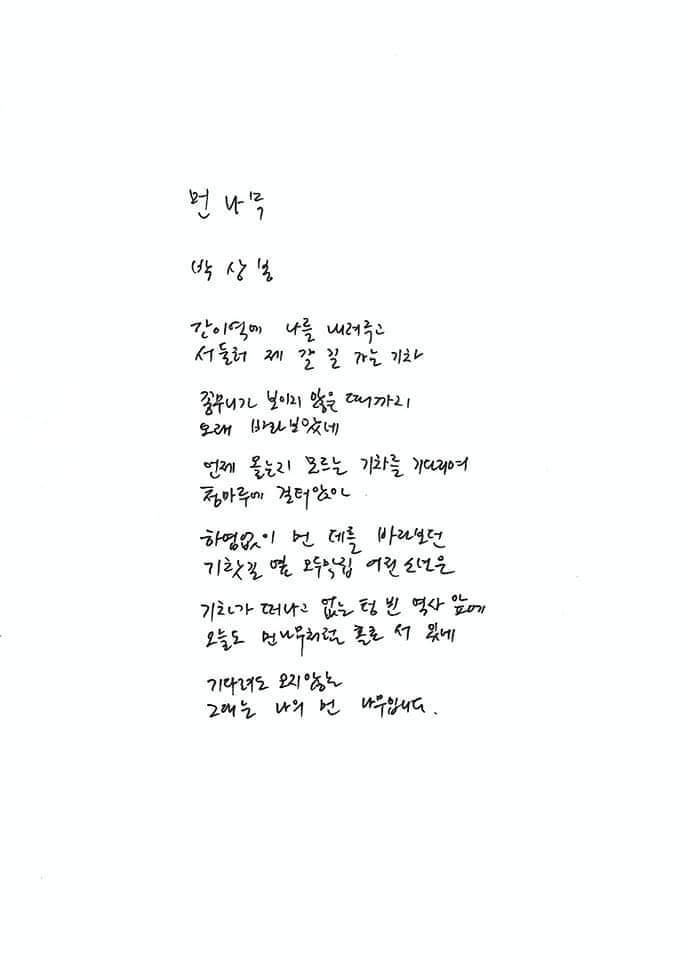 먼 나무
박상봉
간이역에 나를 내려주고
서둘러 제 갈 길 가는 기차
꽁무니가 보이지 않을 때까지
오래 바라보았네
언제 올는지 모르는 기차를 기다리며
쪽마루에 걸터앉아
하염없이 먼 데를 바라보던
기찻길 옆 오두막집 어린 소년은
기차가 떠나고 없는 텅 빈 역사 앞에
오늘도 먼나무처럼 홀로 서 있네
기다려도 오지 않는
그대는 나의 먼 나무입니다.